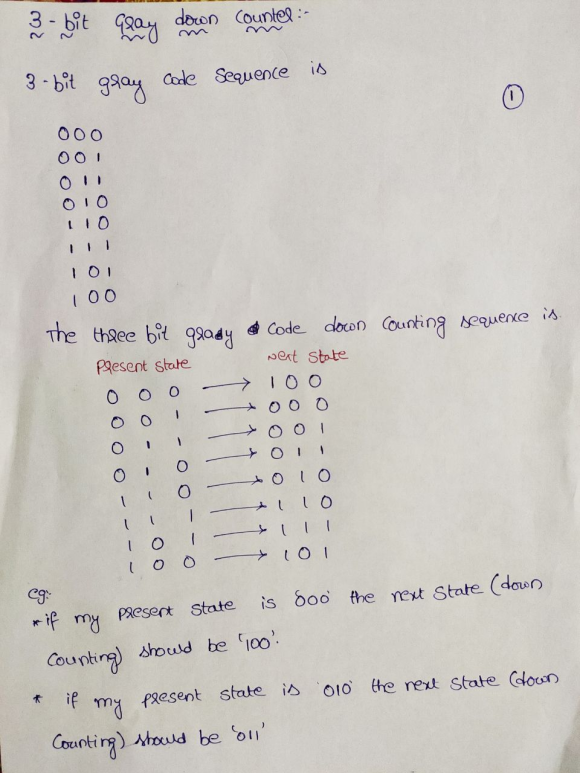 3-bit Gray down counter:-
3-bit gray code sequence is
①
000
001
011
010
110
111
101
100
The three bit gray code down counting sequence is.
Present State Next State
0 0 0 → 1 0 0
0 0 1 → 0 0 0
0 1 1 → 0 0 1
0 1 0 → 0 1 1
1 1 0 → 0 1 0
1 1 1 → 1 1 0
1 0 1 → 1 1 1
1 0 0 → 1 0 1
eg:-
*if my present state is '000' the next state (down
counting) should be '100'.
* if my present state is '010' the next state (down
counting) should be '011'